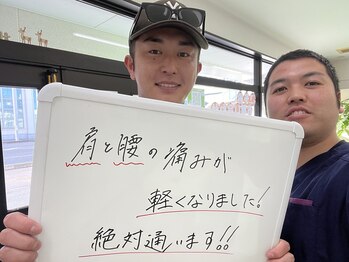 肩と腰の痛みが
軽くなりました!
絶対通います!!